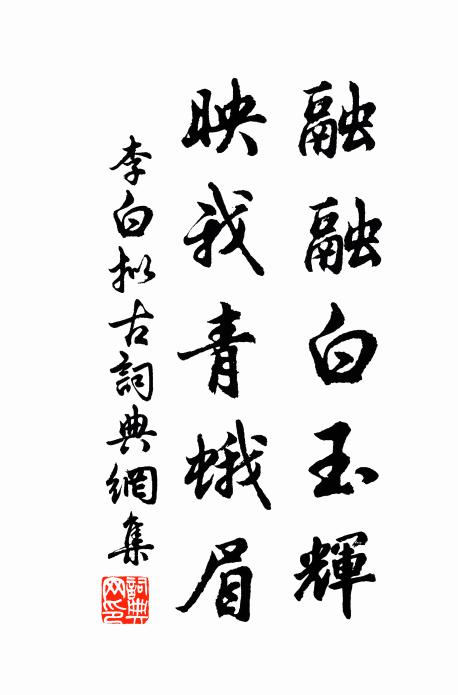 融融白玉輝
映我青蛾眉
李白拟古詞典網集
詞典網